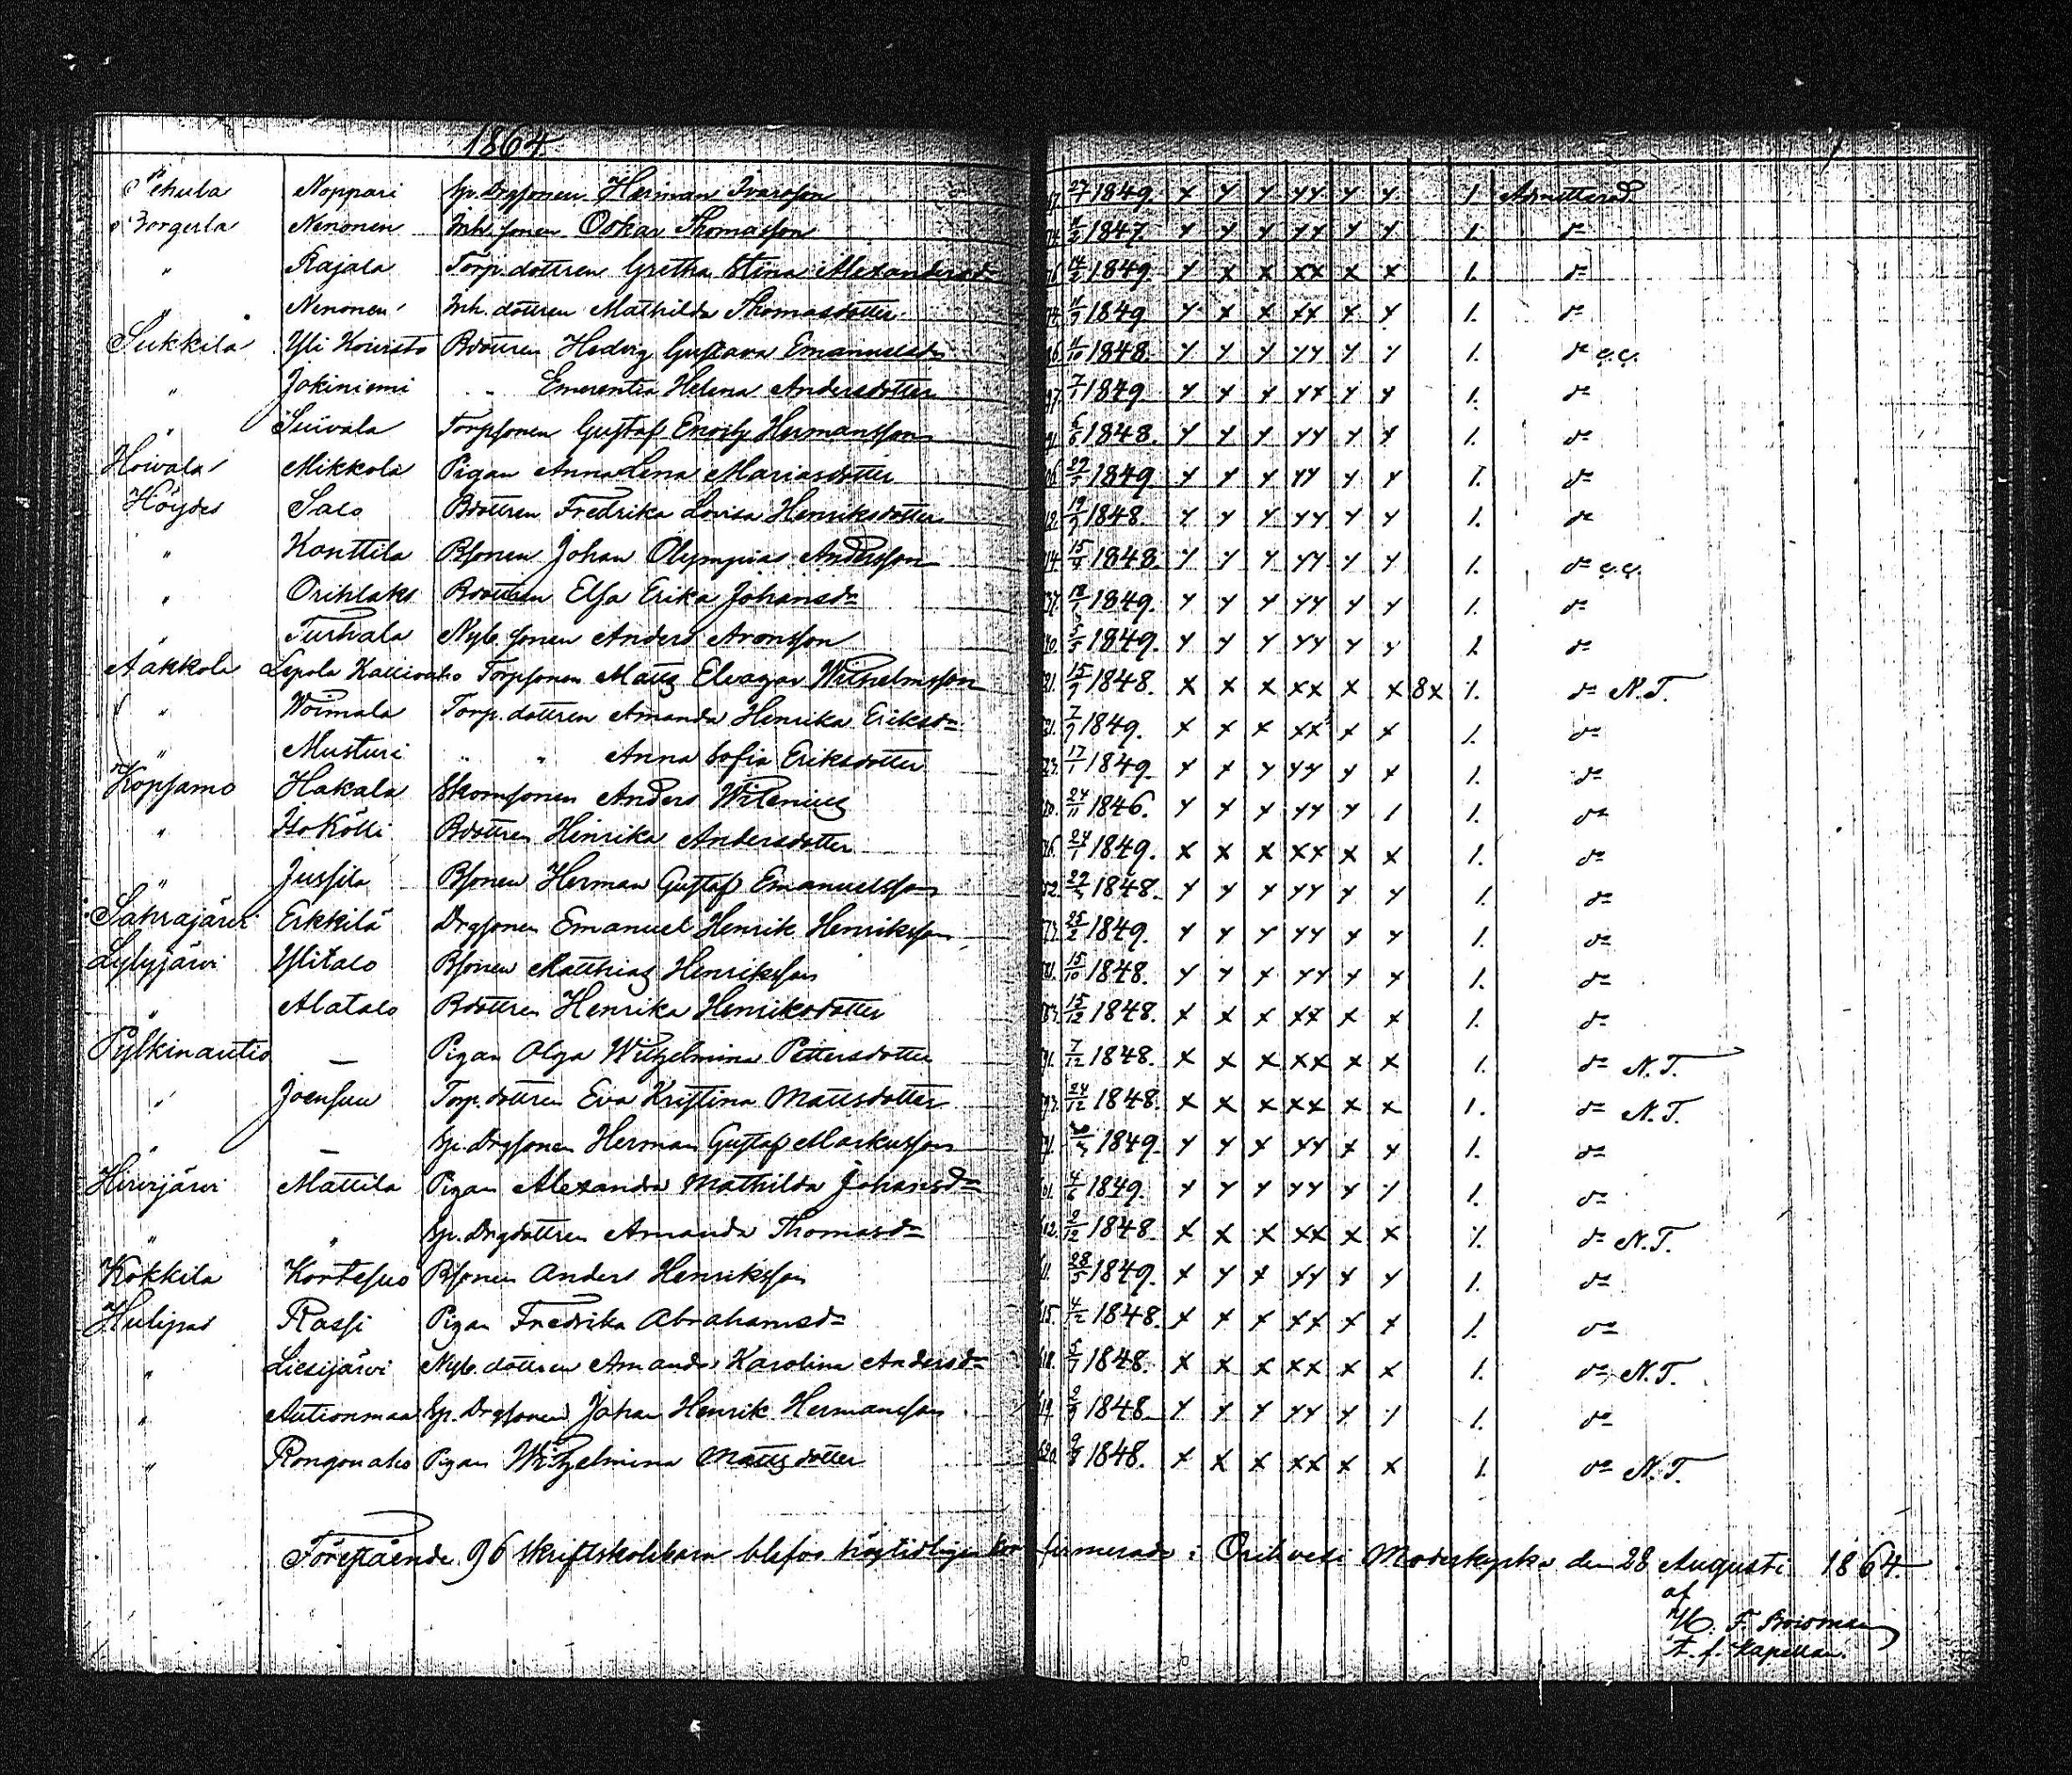 1864.
Noppari Sp. Drgsonen Herman Ivarsson 1849. Y Y Y YY Y Y 1 Admitterad
Nenonen Inh. sonen Oskar Thomasson 1847. Y Y Y YY Y Y 1. do
" Rajala Torp. dottren Gretha Stina Alexandersdr 1849. Y x x xx x x 1. do
" Nenonen Inh. dottren Mathilda Thomasdotter 1849 Y x x xx x Y 1. do
Sukkila Yli Kouisto Bdottren Hedvig Gustava Emanuelsdr 1848. Y Y Y YY Y Y 1. do c.c.
" Jokiniemi " Emerentia Helena Andersdotter 7/7 1849 Y Y Y YY Y Y 1. do
" Siivala Torpsonen Gustaf Enoch Hermansson 1848. Y Y Y YY Y Y 1. do
Hoivala Mikkola Pigan Anna Lena Mariasdotter 1849 Y Y Y YY Y Y 1. do
Höydes Salo Bdottren Fredrika Lovisa Henriksdotter 1848. Y Y Y YY Y Y 1. do
" Konttila Bsonen Johan Olympias Andersson 1848. Y Y Y YY Y Y 1. do c.c.
" Orihlaks Bdottren Elsa Erika Johansdr 18/1 1849. Y Y Y YY Y Y 1. do
" Turhala Nyb. sonen Anders Aronsson 1849. Y Y Y YY Y Y 1. do
Aakkola Lepola Kallionaho Torpsonen Matts Elvagar Wilhelmsson 15/9 1848. x x x xx x x 8x 1. do N.T.
" Woimala Torp. dottren Amanda Henrika Eriksdr 1849. x x x xx x x 1. do
" Musturi " " Anna Sofia Eriksdotter 17/1 1849. Y x Y YY Y x 1. do
Kopsamo Hakala Skomsonen Anders Wilenius 24/11 1846. Y Y Y YY Y 1 1. do
" Iso Kölli Bdottren Hinrika Andersdotter 24/1 1849. x x x xx x x 1. do
" Jussila Bsonen Herman Gustaf Emanuelsson 1848. Y Y Y YY Y Y 1. do
Sahrajärvi Erkkilä Drgsonen Emanuel Henrik Henriksson 25/2 1849. Y Y Y YY Y Y 1. do
Lylyjärvi Ylitalo Bsonen Matthias Henriksson 15/10 1848. Y Y x YY Y Y 1. do
" Alatalo Bdottren Henrika Henriksdotter 15/12 1848. x x x xx x x 1. do
Pylkinautio — Pigan Olga Wilhelmina Pettersdotter 7/12 1848. x x x xx x x 1. do N.T.
" Joensuu Torp. dottren Eva Kristina Mattsdotter 24/12 1848. x x x xx x x 1. do N.T.
" — Sp. Drgsonen Herman Gustaf Markusson 1849. Y Y x YY x Y 1. do
Hirvijärvi Mattila Pigan Alexandra Mathilda Johansdr 4/6 1849. Y Y Y YY Y 1 1. do
" " Sp. Drgdottren Amanda Thomasdr 9/12 1848. x x x xx x x 1. do N.T.
Kokkila Kortesuo Bsonen Anders Henriksson 28/5 1849. x Y x YY Y Y 1. do
Hulipas Rassi Pigan Fredrika Abrahamsdr 4/12 1848. x x x xx x x 1. do
" Liesijärvi Nyb. dottren Amanda Karolina Andersdr 5/7 1848. x x x xx x x 1. do N.T.
" Autionmaa Sp. Drgsonen Johan Henrik Hermansson 1848. Y Y Y YY Y 1 1. do
" Rongonaho Pigan Wilhelmina Mattsdotter 1848. x x x xx x x 1. do N.T.
Förestående 96 skriftskolebarn blefvo högtidligen konfirmerade i Orihvesi Moderkyrka den 28 Augusti 1864.
af
T. f. Kapellan.